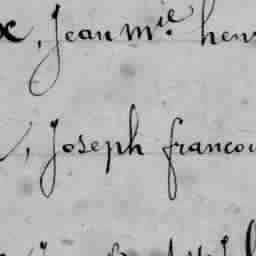 , Jean m.ie hen
, Joseph francoi